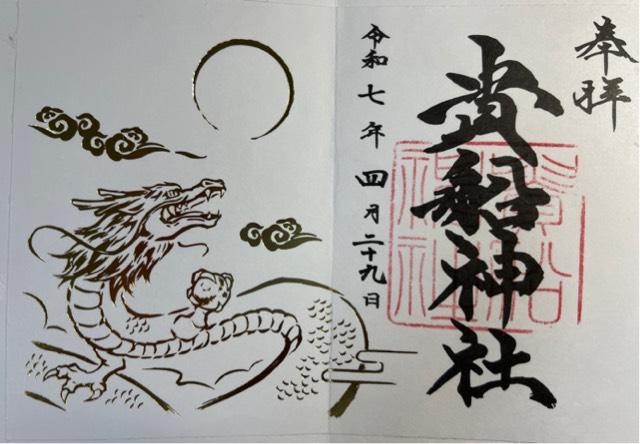 奉拝
貴船神社
令和七年四月二十九日